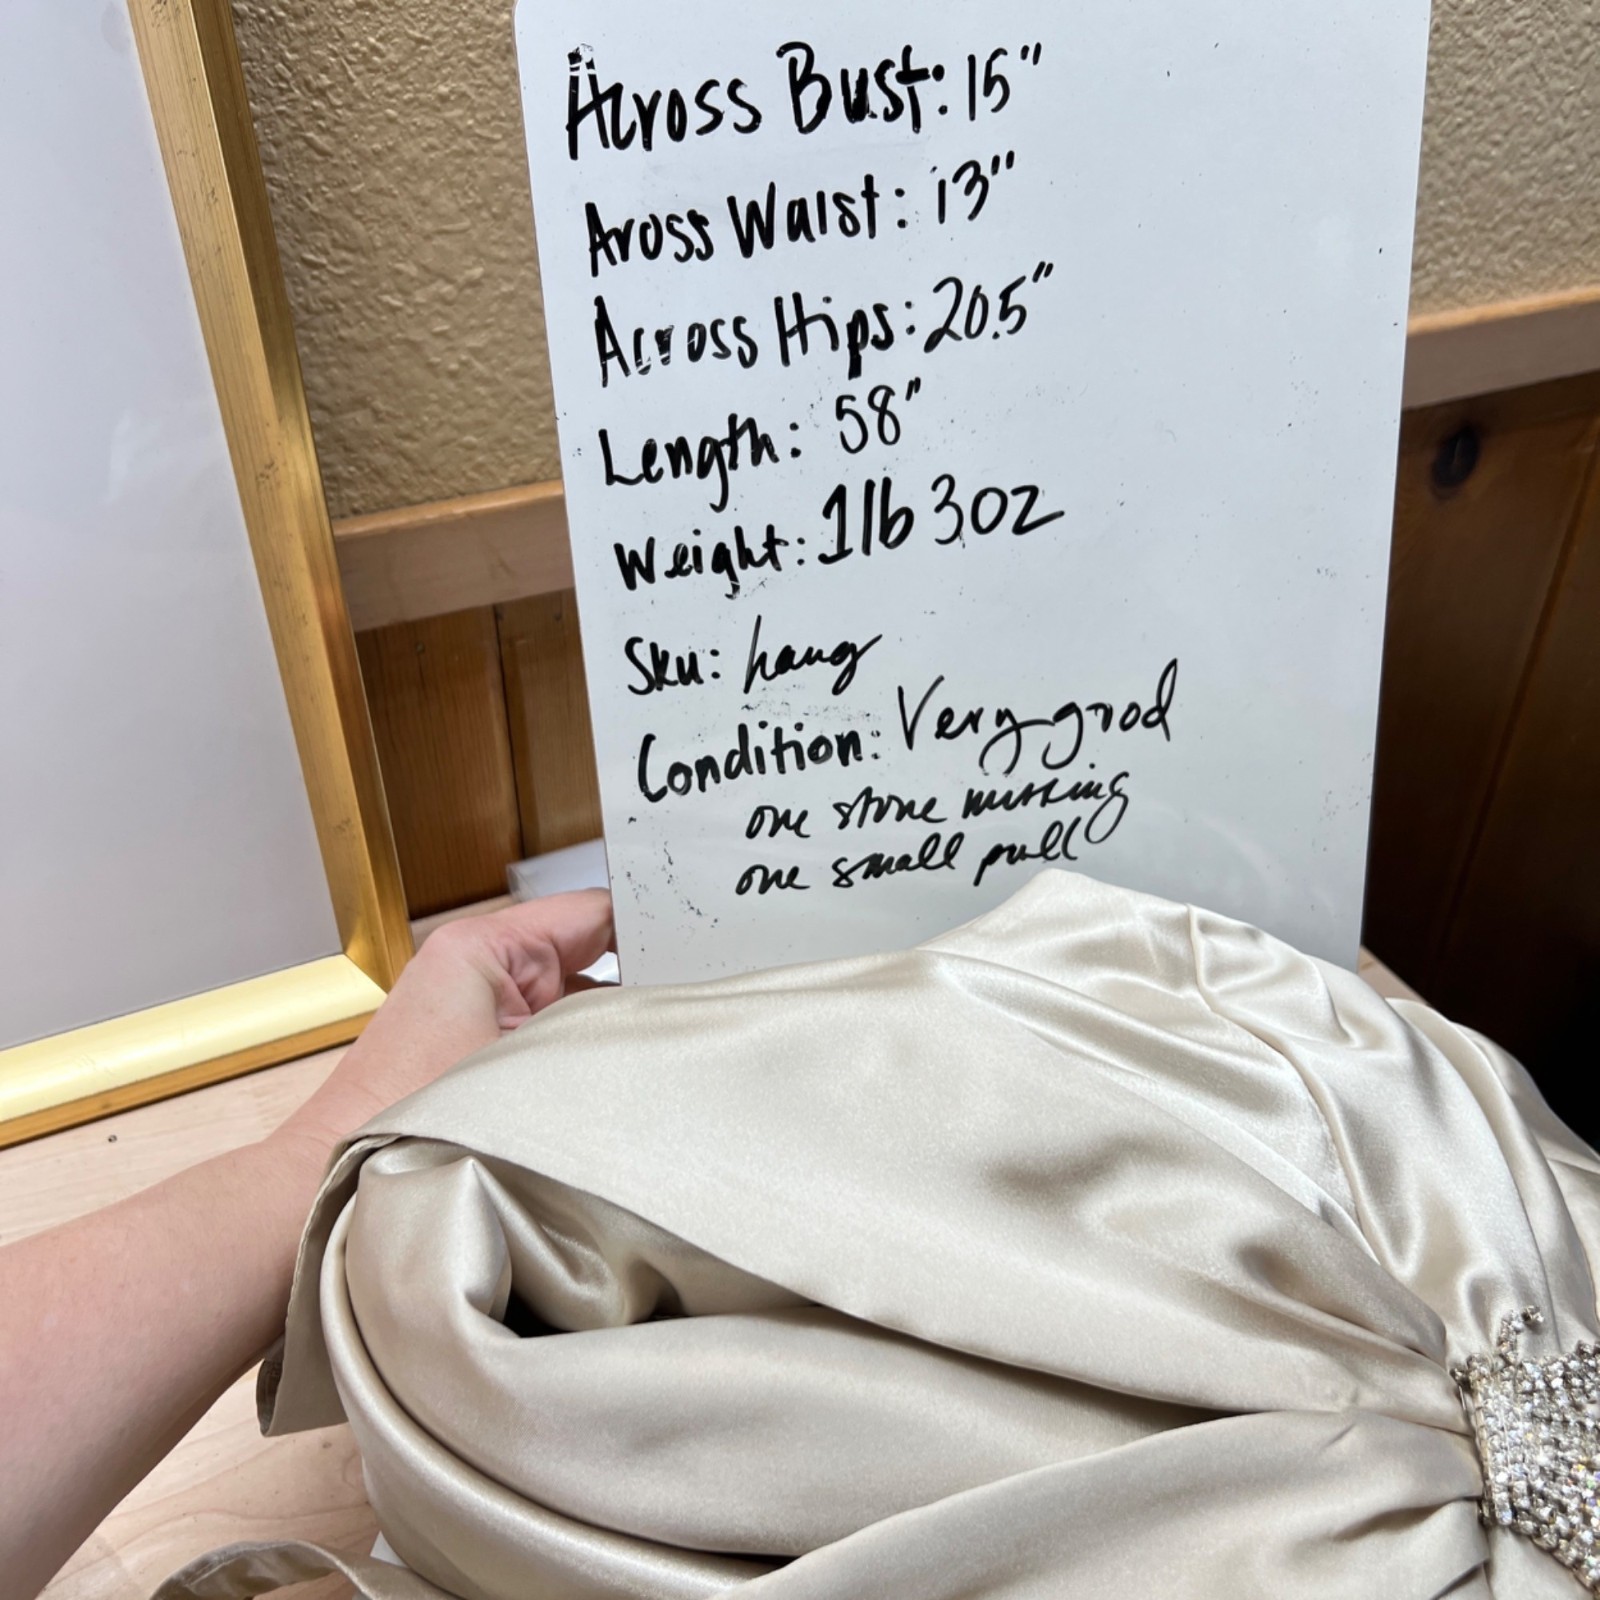 Across Bust: 15"
Aross Waist: 13"
Across Hips: 20.5"
Length: 58"
Weight: 1lb 3oz
Sku: hang
Condition: Very good
one stone missing
one small pull